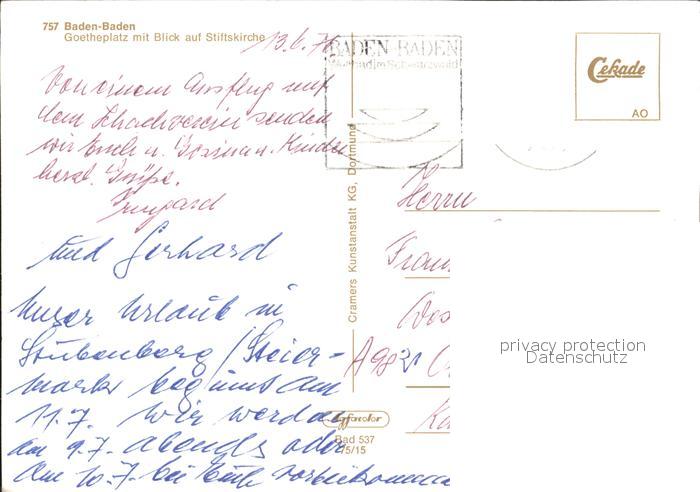 757 Baden-Baden
Goetheplatz mit Blick auf Stiftskirche
13.6.76
BADEN-BADEN
Cekade
AO
Von einem Ausflug mit
dem Schachverein senden
wir Euch u. Kinder
herzl. Grüße.
Irmgard
und Gerhard
Unser Urlaub in
Stubenberg / Steier-
mark beginnt am
11.7. Wir werden
am 9.7. abends oder
am 10.7. bei Euch vorbeikommen
Cramers Kunstanstalt KG, Dortmund
Bad 537
5/15
Herrn
Fran
A 9821
privacy protection
Datenschutz